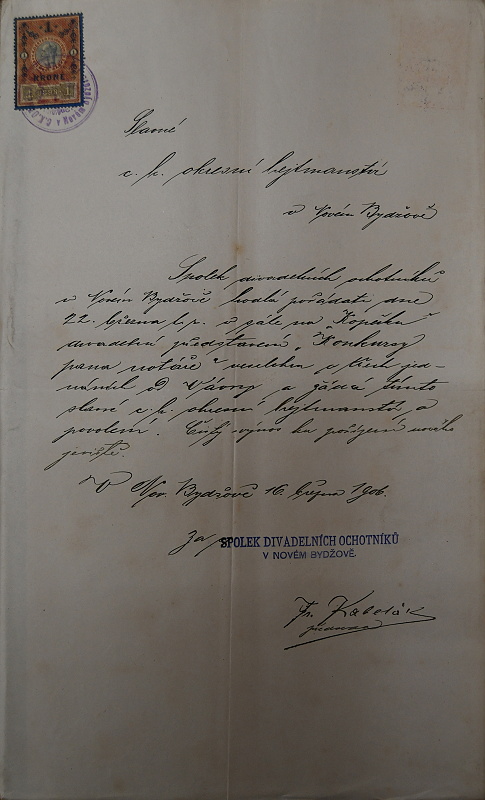 1
KRONE
Slavné
c. k. okresní hejtmanství
v Novém Bydžově
Spolek divadelních ochotníků
v Novém Bydžově hodlá pořádati dne
22. března t. r. v sále na "Kopáku"
divadelní představení "Konkursy
pana notáře" veselohru o třech jed-
náních od Vávry a žádá tímto
slavné c. k. okresní hejtmanství o
povolení. Čistý výnos ku pořízení nového
jeviště.
V Nov. Bydžově 16. března 1906.
Za
SPOLEK DIVADELNÍCH OCHOTNÍKŮ
V NOVÉM BYDŽOVĚ.
Fr. Kabelák
předseda